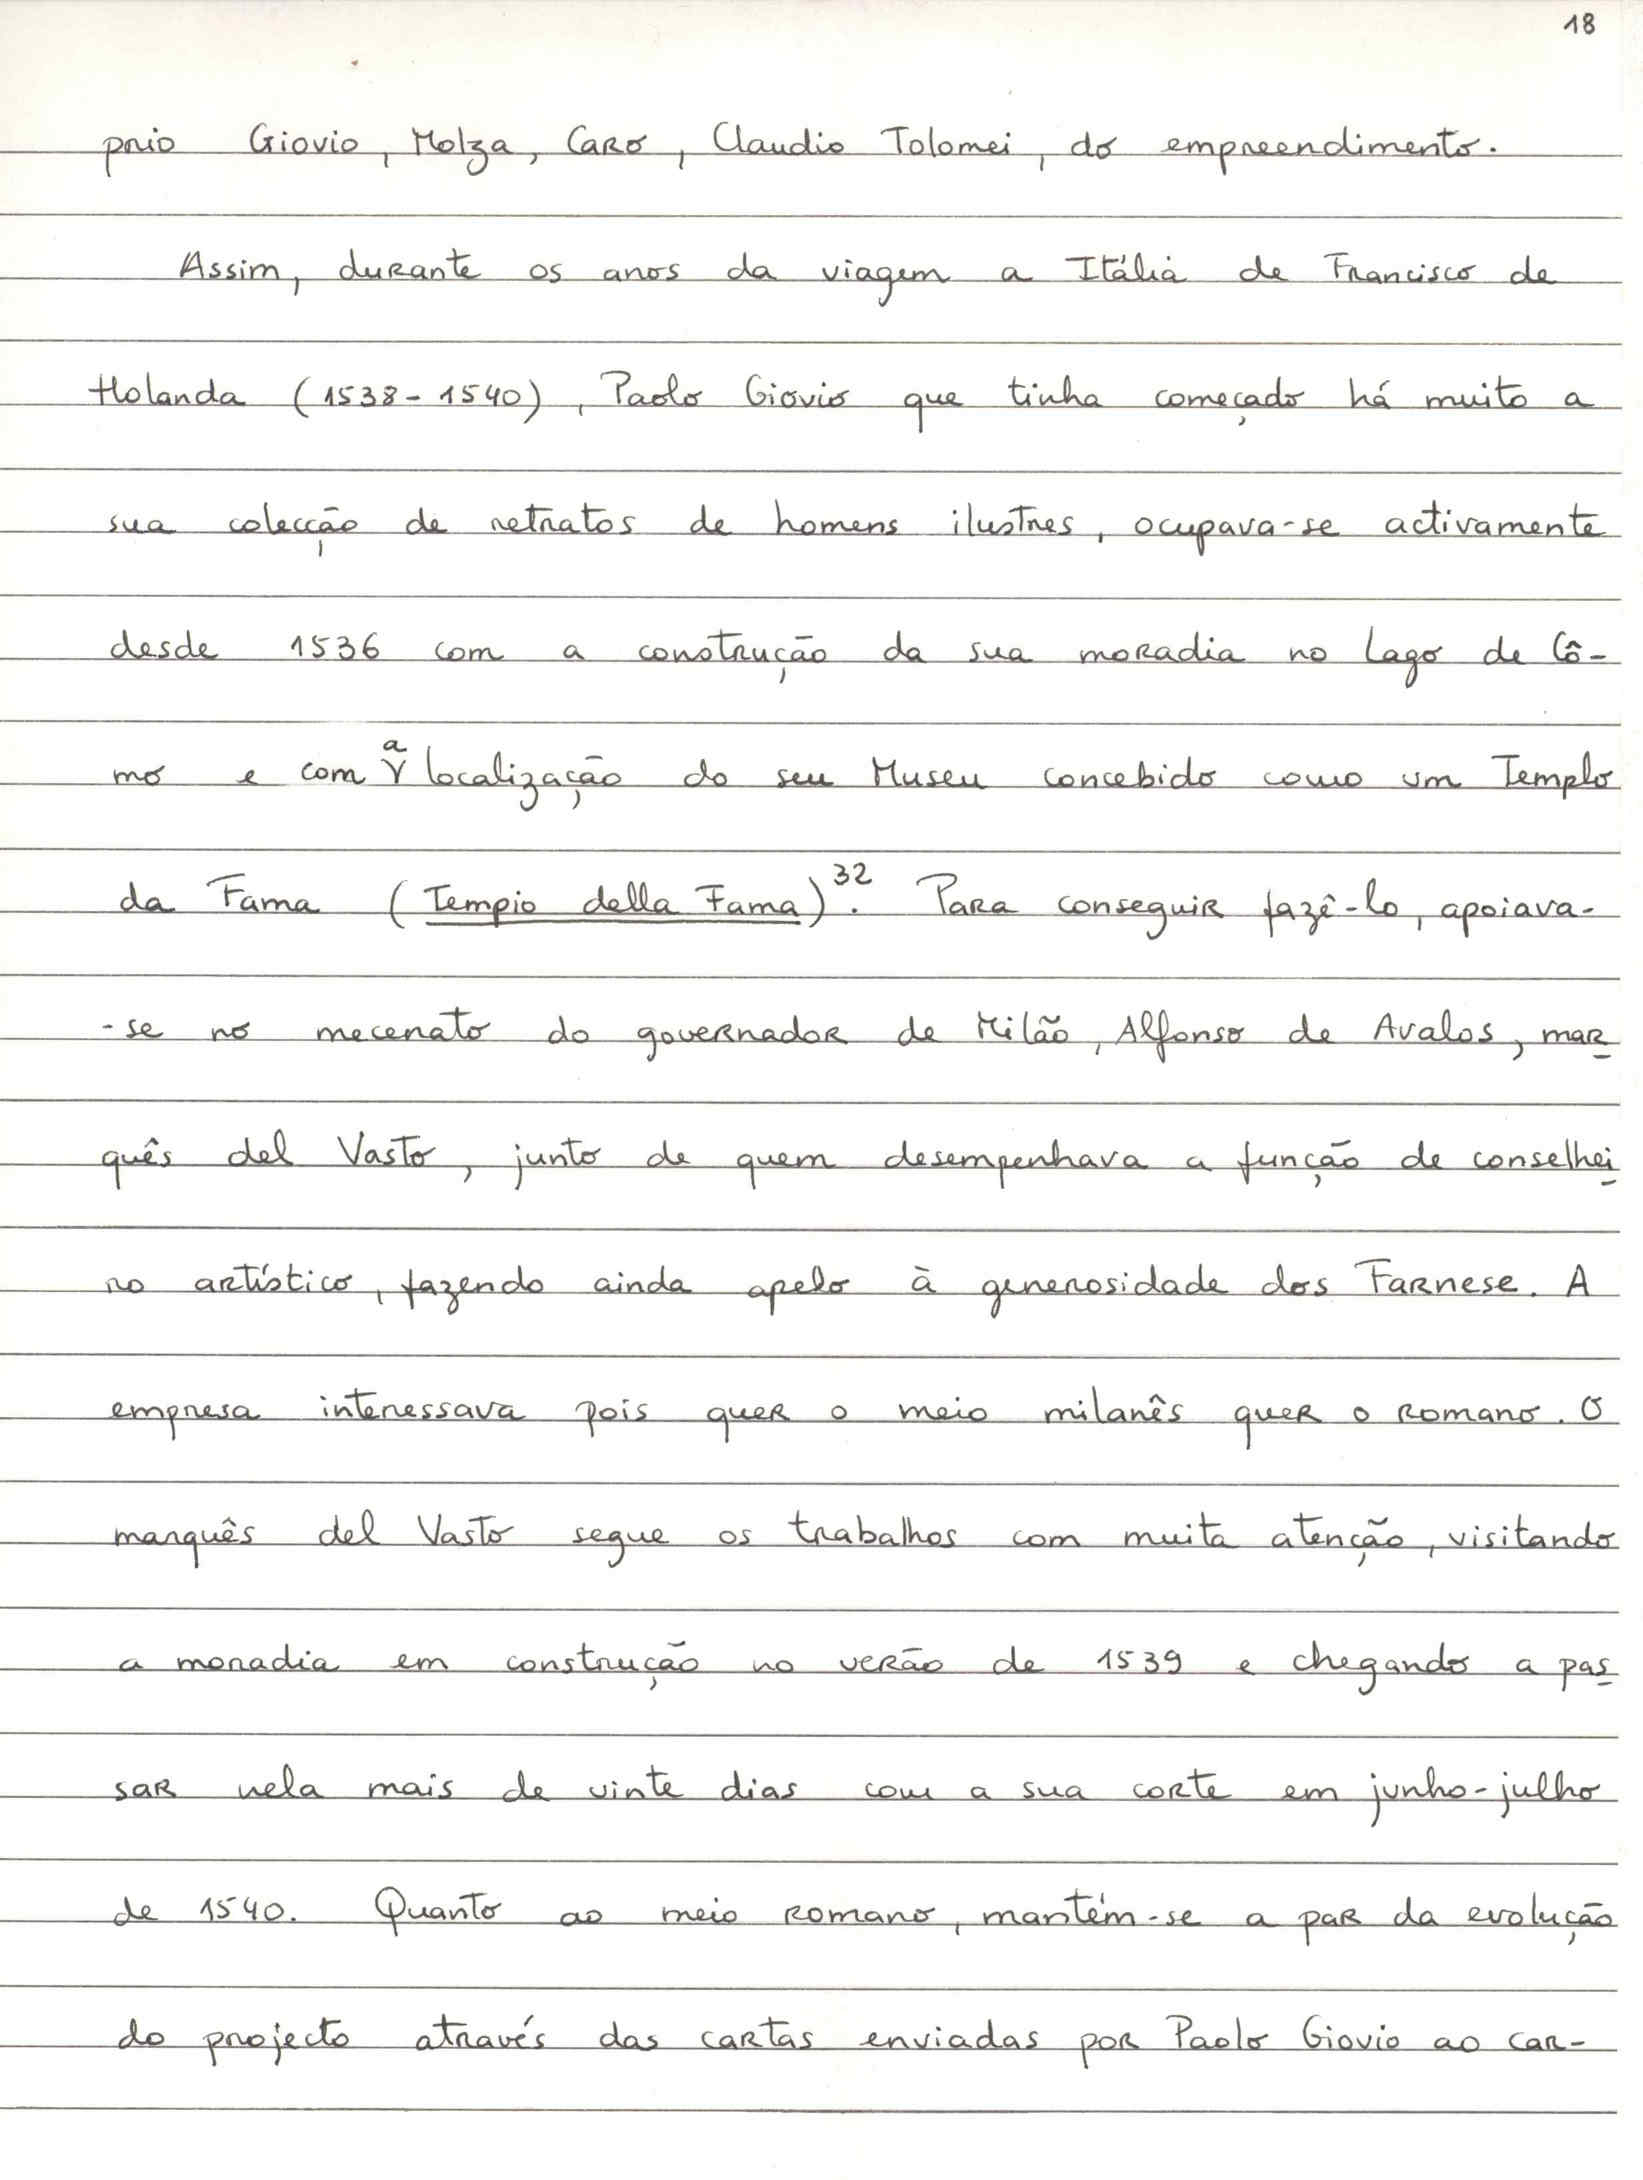 18
prio Giovio, Molza, Caro, Claudio Tolomei, do empreendimento.
Assim, durante os anos da viagem a Itália de Francisco de
Holanda (1538-1540), Paolo Giovio que tinha começado há muito a
sua colecção de retratos de homens ilustres, ocupava-se activamente
desde 1536 com a construção da sua moradia no Lago de Cô-
mo e com a localização do seu Museu concebido como um Templo
da Fama (Tempio della Fama)³². Para conseguir fazê-lo, apoiava-
-se no mecenato do governador de Milão, Alfonso de Avalos, mar
quês del Vasto, junto de quem desempenhava a função de conselhei
ro artístico, fazendo ainda apelo à generosidade dos Farnese. A
empresa interessava pois quer o meio milanês quer o romano. O
marquês del Vasto segue os trabalhos com muita atenção, visitando
a moradia em construção no verão de 1539 e chegando a pas
sar nela mais de vinte dias com a sua corte em junho-julho
de 1540. Quanto ao meio romano, mantém-se a par da evolução
do projecto através das cartas enviadas por Paolo Giovio ao car-